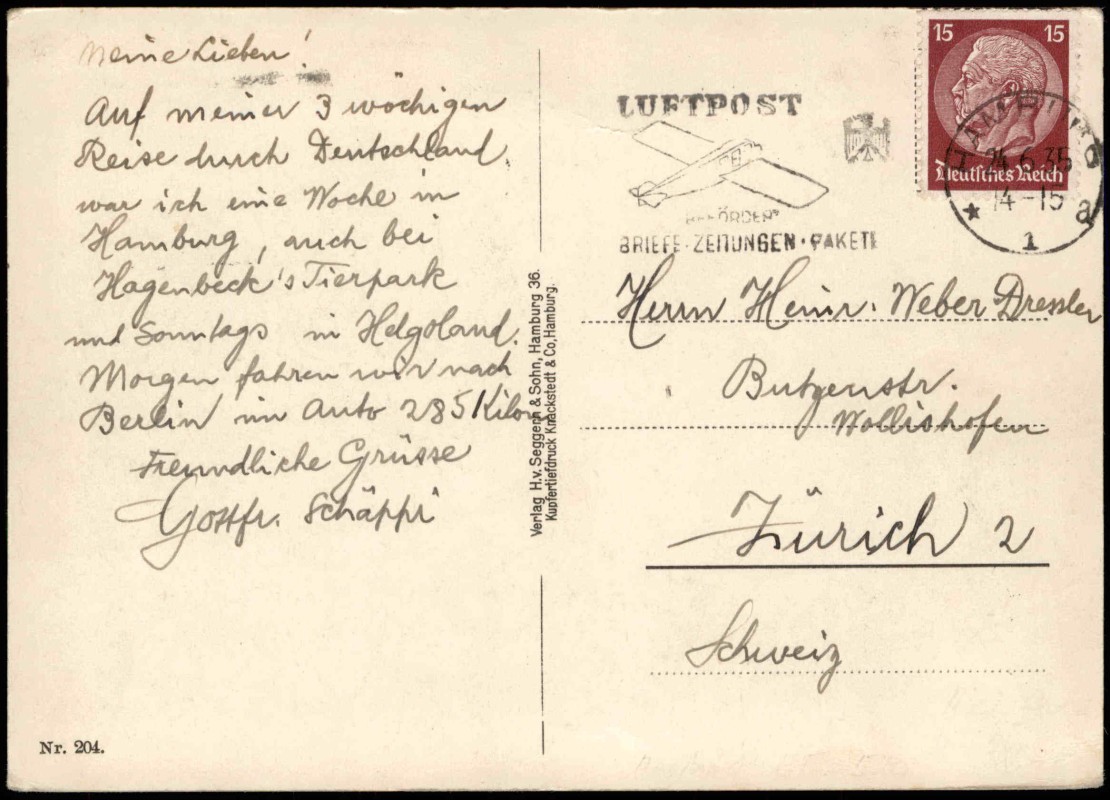 Meine Lieben!
Auf meiner 3 wöchigen
Reise durch Deutschland
war ich eine Woche in
Hamburg, auch bei
Hagenbeck's Tierpark
und Sonntags in Helgoland.
Morgen fahren wir nach
Berlin im Auto 285 Kilom
Freundliche Grüsse
Gottfr. Schäppi
Nr. 204.
Verlag H.v. Seggern & Sohn, Hamburg 36.
Kupfertiefdruck Knackstedt & Co, Hamburg.
LUFTPOST
BEFÖRDERT
BRIEFE·ZEITUNGEN·PAKETE
15 15
Deutsches Reich
HAMBURG
24.6.35
14-15
* 1 a
Herrn Heinr. Weber Dressler
Butzenstr.
Wollishofen
Zürich 2
Schweiz